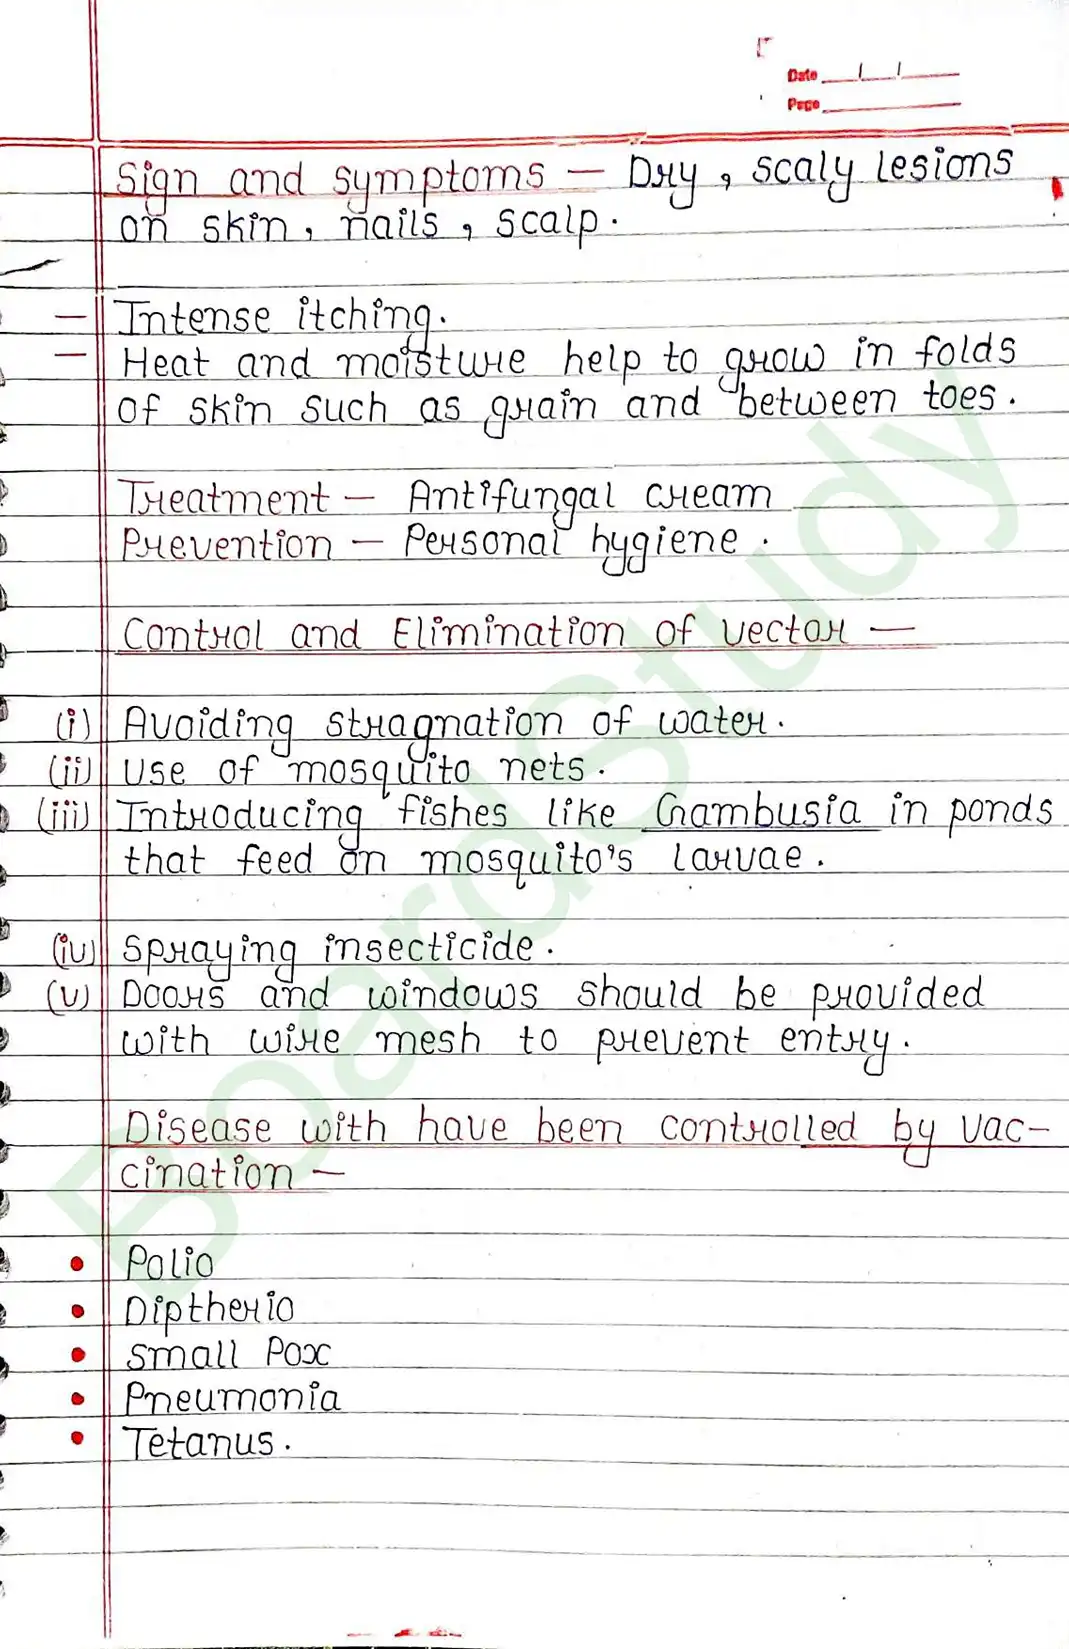 Date
Page
Sign and symptoms — Dry, scaly lesions
on skin, nails, scalp.
— Intense itching.
— Heat and moisture help to grow in folds
of skin such as grain and between toes.
Treatment — Antifungal cream
Prevention — Personal hygiene.
Control and Elimination of vector —
(i) Avoiding stragnation of water.
(ii) Use of mosquito nets.
(iii) Introducing fishes like Gambusia in ponds
that feed on mosquito's larvae.
(iv) Spraying insecticide.
(v) Doors and windows should be provided
with wire mesh to prevent entry.
Disease with have been controlled by vac-
cination —
• Polio
• Diptherio
• Small Pox
• Pneumonia
• Tetanus.
BoardStudy